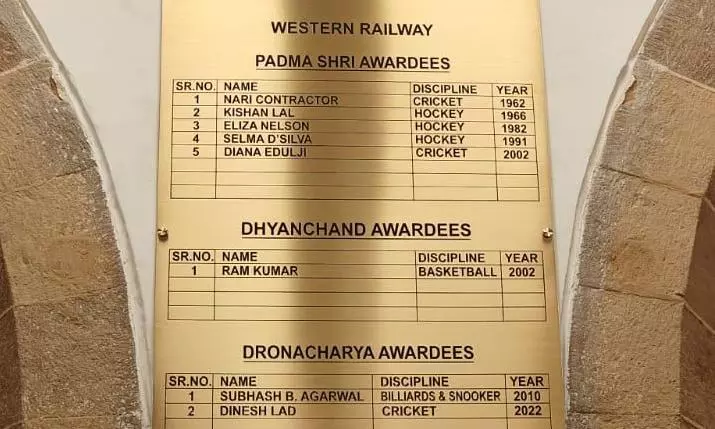 WESTERN RAILWAY
PADMA SHRI AWARDEES
SR.NO. NAME DISCIPLINE YEAR
1 NARI CONTRACTOR CRICKET 1962
2 KISHAN LAL HOCKEY 1966
3 ELIZA NELSON HOCKEY 1982
4 SELMA D'SILVA HOCKEY 1991
5 DIANA EDULJI CRICKET 2002
DHYANCHAND AWARDEES
SR.NO. NAME DISCIPLINE YEAR
1 RAM KUMAR BASKETBALL 2002
DRONACHARYA AWARDEES
SR.NO. NAME DISCIPLINE YEAR
1 SUBHASH B. AGARWAL BILLIARDS & SNOOKER 2010
2 DINESH LAD CRICKET 2022